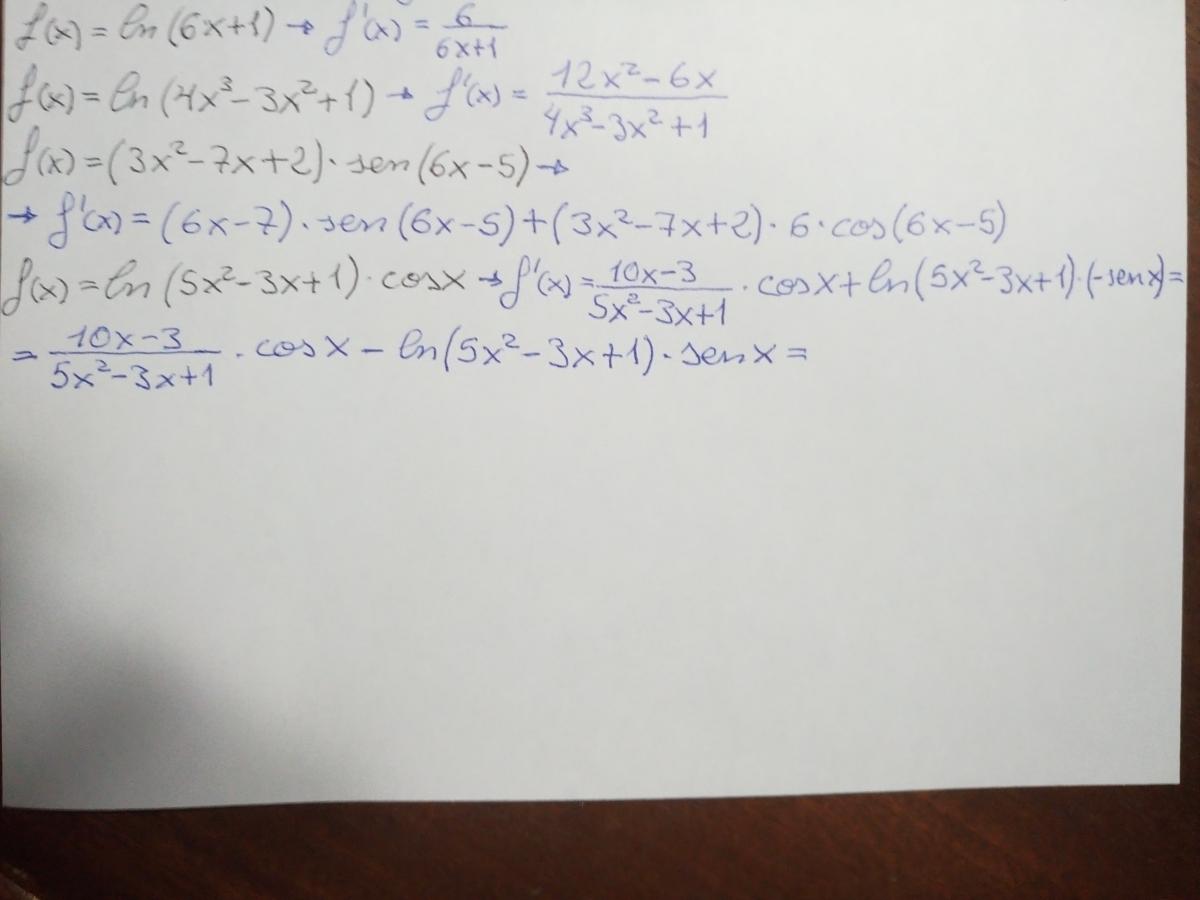 f(x) = ln(6x+1) → f'(x) = 6/(6x+1)
f(x) = ln(4x³-3x²+1) → f'(x) = (12x²-6x)/(4x³-3x²+1)
f(x) = (3x²-7x+2)·sen(6x-5) →
→ f'(x) = (6x-7)·sen(6x-5)+(3x²-7x+2)·6·cos(6x-5)
f(x) = ln(5x²-3x+1)·cosx → f'(x) = (10x-3)/(5x²-3x+1)·cosx+ln(5x²-3x+1)·(-senx) =
= (10x-3)/(5x²-3x+1)·cosx-ln(5x²-3x+1)·senx =